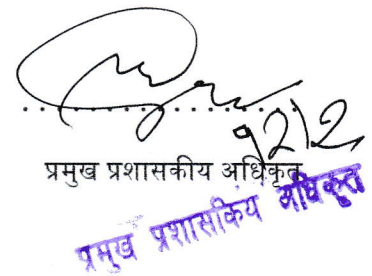 १२।२
प्रमुख प्रशासकीय अधिकृत
प्रमुख प्रशासकिय अधिकृत